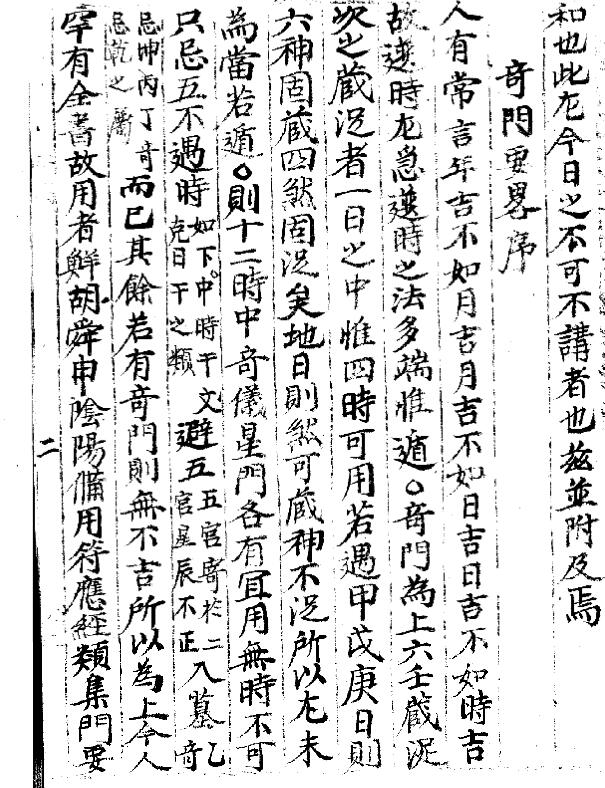 和也此尤今日之不可不講者也玆並附及焉
奇門要畧序
人有常言年吉不如月吉月吉不如日吉日吉不如時吉
故選時尤急選時之法多端惟遁〇奇門為上六壬蔵没
次之蔵没者一日之中惟四時可用若遇甲戊庚日則
六神固蔵四煞固没矣地日則煞可蔵神不没所以尤未
為當若遁〇則十二時中奇儀星門各有宜用無時不可
只忌五不遇時如下中時干克日干之類文避五五宫寄於二宫星辰不正入墓乙奇
忌坤丙丁奇忌乾之屬而已其餘若有奇門則無不吉所以為上今人
罕有全書故用者鮮胡舜申陰陽備用符應經類集門要
二